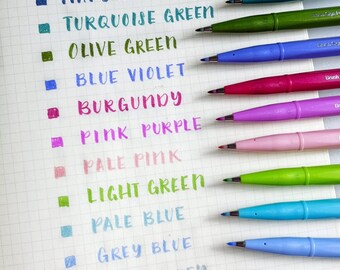 TURQUOISE GREEN
OLIVE GREEN
BLUE VIOLET
BURGUNDY
PINK PURPLE
PALE PINK
LIGHT GREEN
PALE BLUE
GREY BLUE